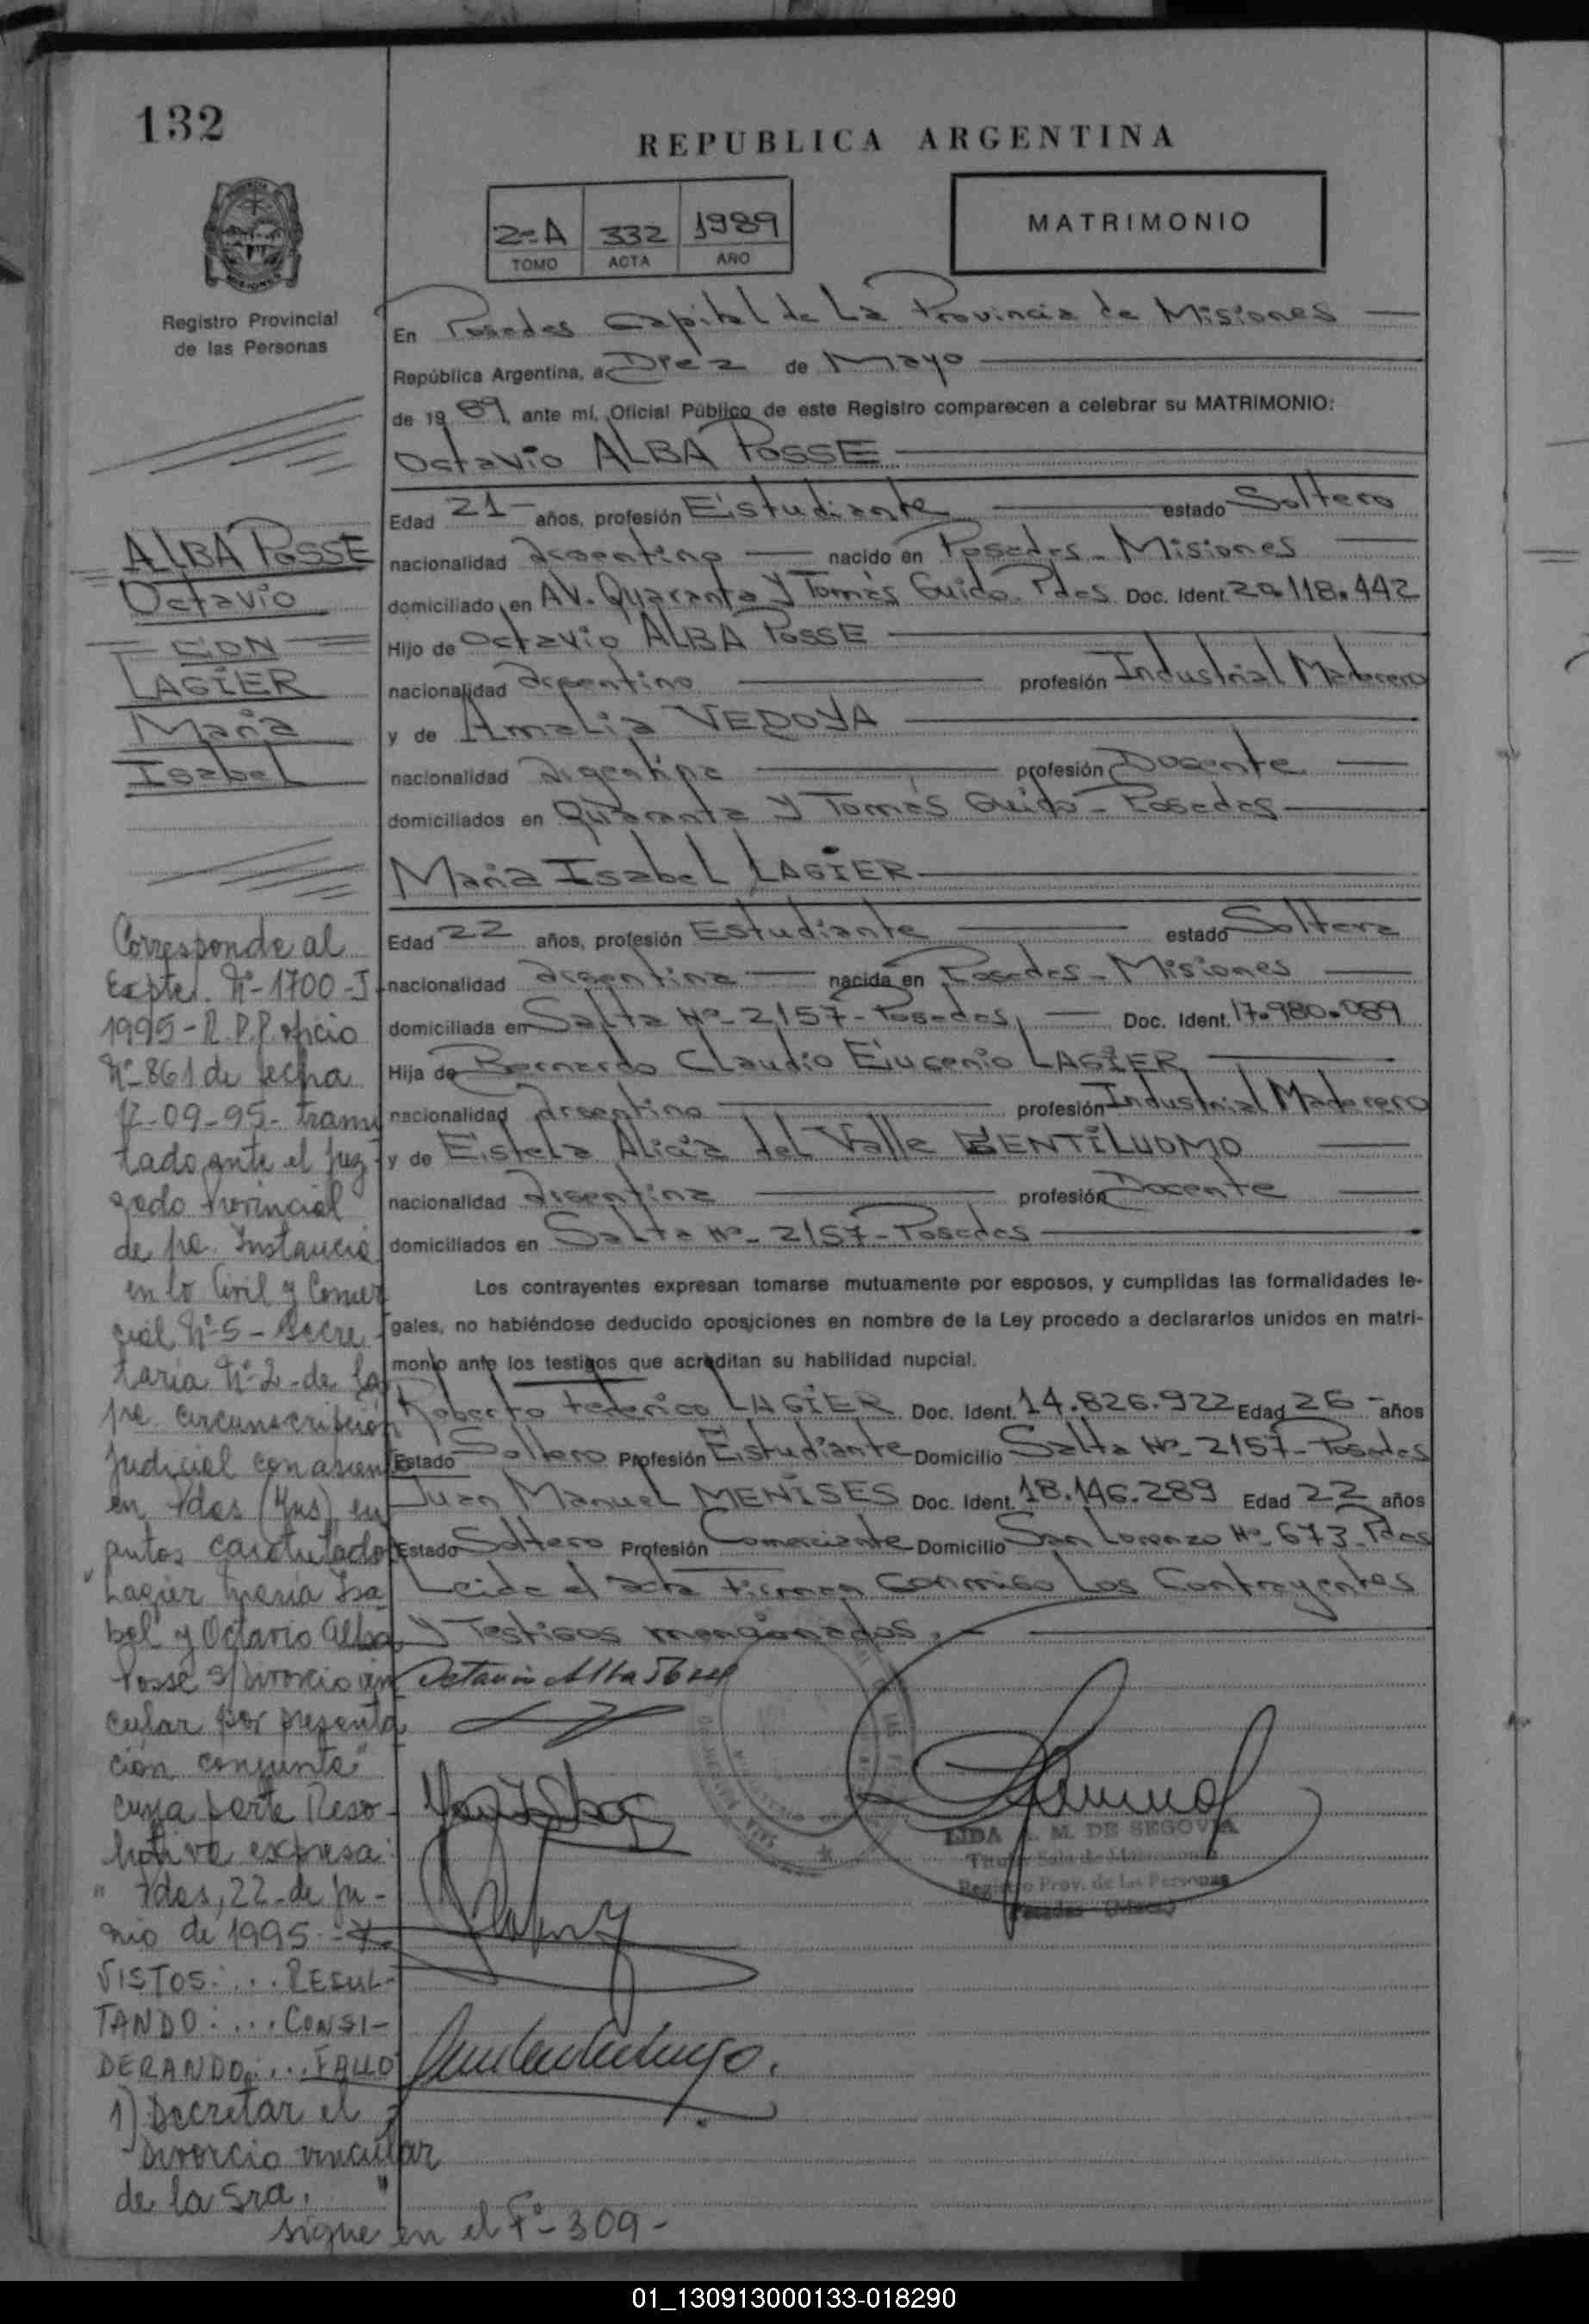 132
REPUBLICA ARGENTINA
2ºA 332 1989
TOMO ACTA AÑO
MATRIMONIO
Registro Provincial
de las Personas
En Posadas Capital de La Provincia de Misiones
República Argentina, a Diez de Mayo
de 19 89, ante mí, Oficial Público de este Registro comparecen a celebrar su MATRIMONIO:
Octavio ALBA POSSE
Edad 21 años, profesión Estudiante estado Soltero
nacionalidad argentino nacido en Posadas - Misiones
domiciliado en AV. Quaranta y Tomás Guido - Pdas Doc. Ident. 20.118.442
Hijo de Octavio ALBA POSSE
nacionalidad argentino profesión Industrial Maderero
y de Amalia VEDOYA
nacionalidad argentina profesión Docente
domiciliados en Quaranta y Tomás Guido - Posadas
María Isabel LAGIER
Edad 22 años, profesión Estudiante estado Soltera
nacionalidad argentina nacida en Posadas - Misiones
domiciliada en Salta Nº - 2157 - Posadas, Doc. Ident. 17.980.089
Hija de Bernardo Claudio Eugenio LAGIER
nacionalidad argentino profesión Industrial Maderero
y de Estela Alicia del Valle BENTILUOMO
nacionalidad argentina profesión Docente
domiciliados en Salta Nº - 2157 - Posadas
Los contrayentes expresan tomarse mutuamente por esposos, y cumplidas las formalidades le-
gales, no habiéndose deducido oposiciones en nombre de la Ley procedo a declararlos unidos en matri-
monio ante los testigos que acreditan su habilidad nupcial.
Roberto Federico LAGIER Doc. Ident. 14.826.922 Edad 26 años
Estado Soltero Profesión Estudiante Domicilio Salta Nº - 2157 - Posadas
Juan Manuel MENISES Doc. Ident. 18.146.289 Edad 22 años
Estado Soltero Profesión Comerciante Domicilio San Lorenzo Nº - 673 - Pdas
Leida el acta Firman conmigo Los Contrayentes
y Testigos mencionados.
Octavio Alba Posse
LIDA M. DE SEGOVIA
Registro Prov. de las Personas
ALBA POSSE
Octavio
CON
LAGIER
María
Isabel
Corresponde al
Expte. Nº - 1700 - J
1995 - R.P.P. oficio
Nº - 861 de fecha
12-09-95 - trami
tado ante el Juz-
gado Provincial
de 1ra. Instancia
en lo Civil y Comer
cial Nº 5 - Secre-
taría Nº 2 - de la
1ra. circunscripción
judicial con asien
en Pdas (Mns), en
autos caratulado
"Lagier María Isa
bel y Octavio Alba
Posse s/Divorcio vin
cular por presenta
ción conjunta"
cuya parte Reso-
lutiva expresa:
"Pdas, 22 de ju-
nio de 1995.-
VISTOS: ... RESUL-
TANDO: ... CONSI-
DERANDO: ... FALLO
1) Decretar el
Divorcio vincular
de la Sra. "
sigue en el Fº - 309 -
01_130913000133-018290